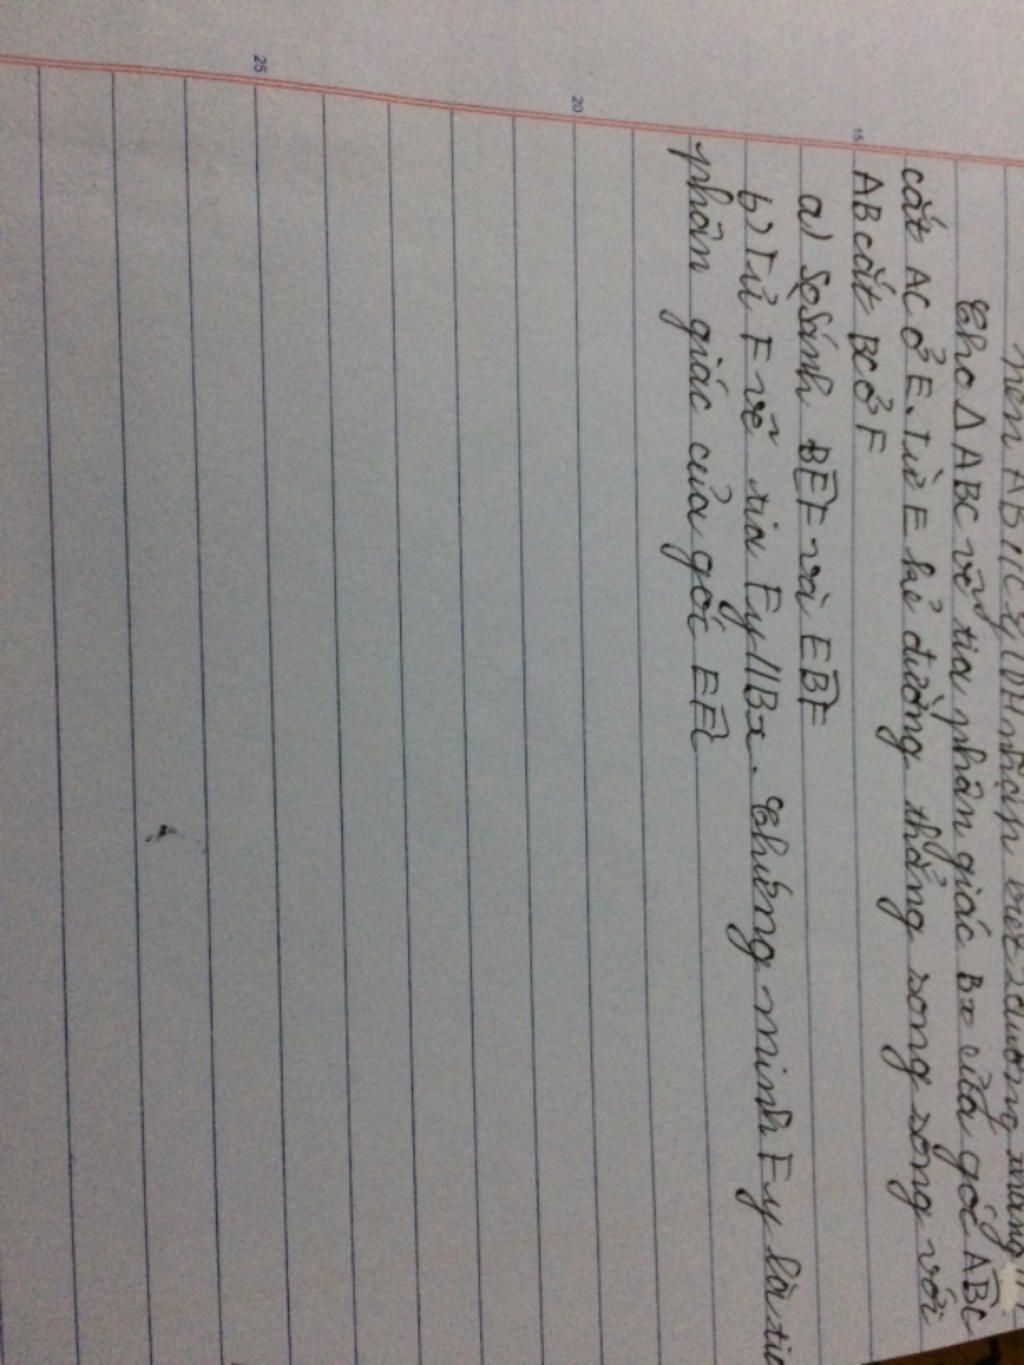 nên AB//Cy (DH nhận biết 2 đường thẳng //)
Cho Δ ABC vẽ tia phân giác Bx của góc ABC
cắt AC ở E. Từ E kẻ đường thẳng song song với
AB cắt BC ở F
a) So Sánh BEF và EBF
b) Từ F vẽ tia Fy//Bx. Chứng minh Fy là tia
phân giác của góc
15
20
25